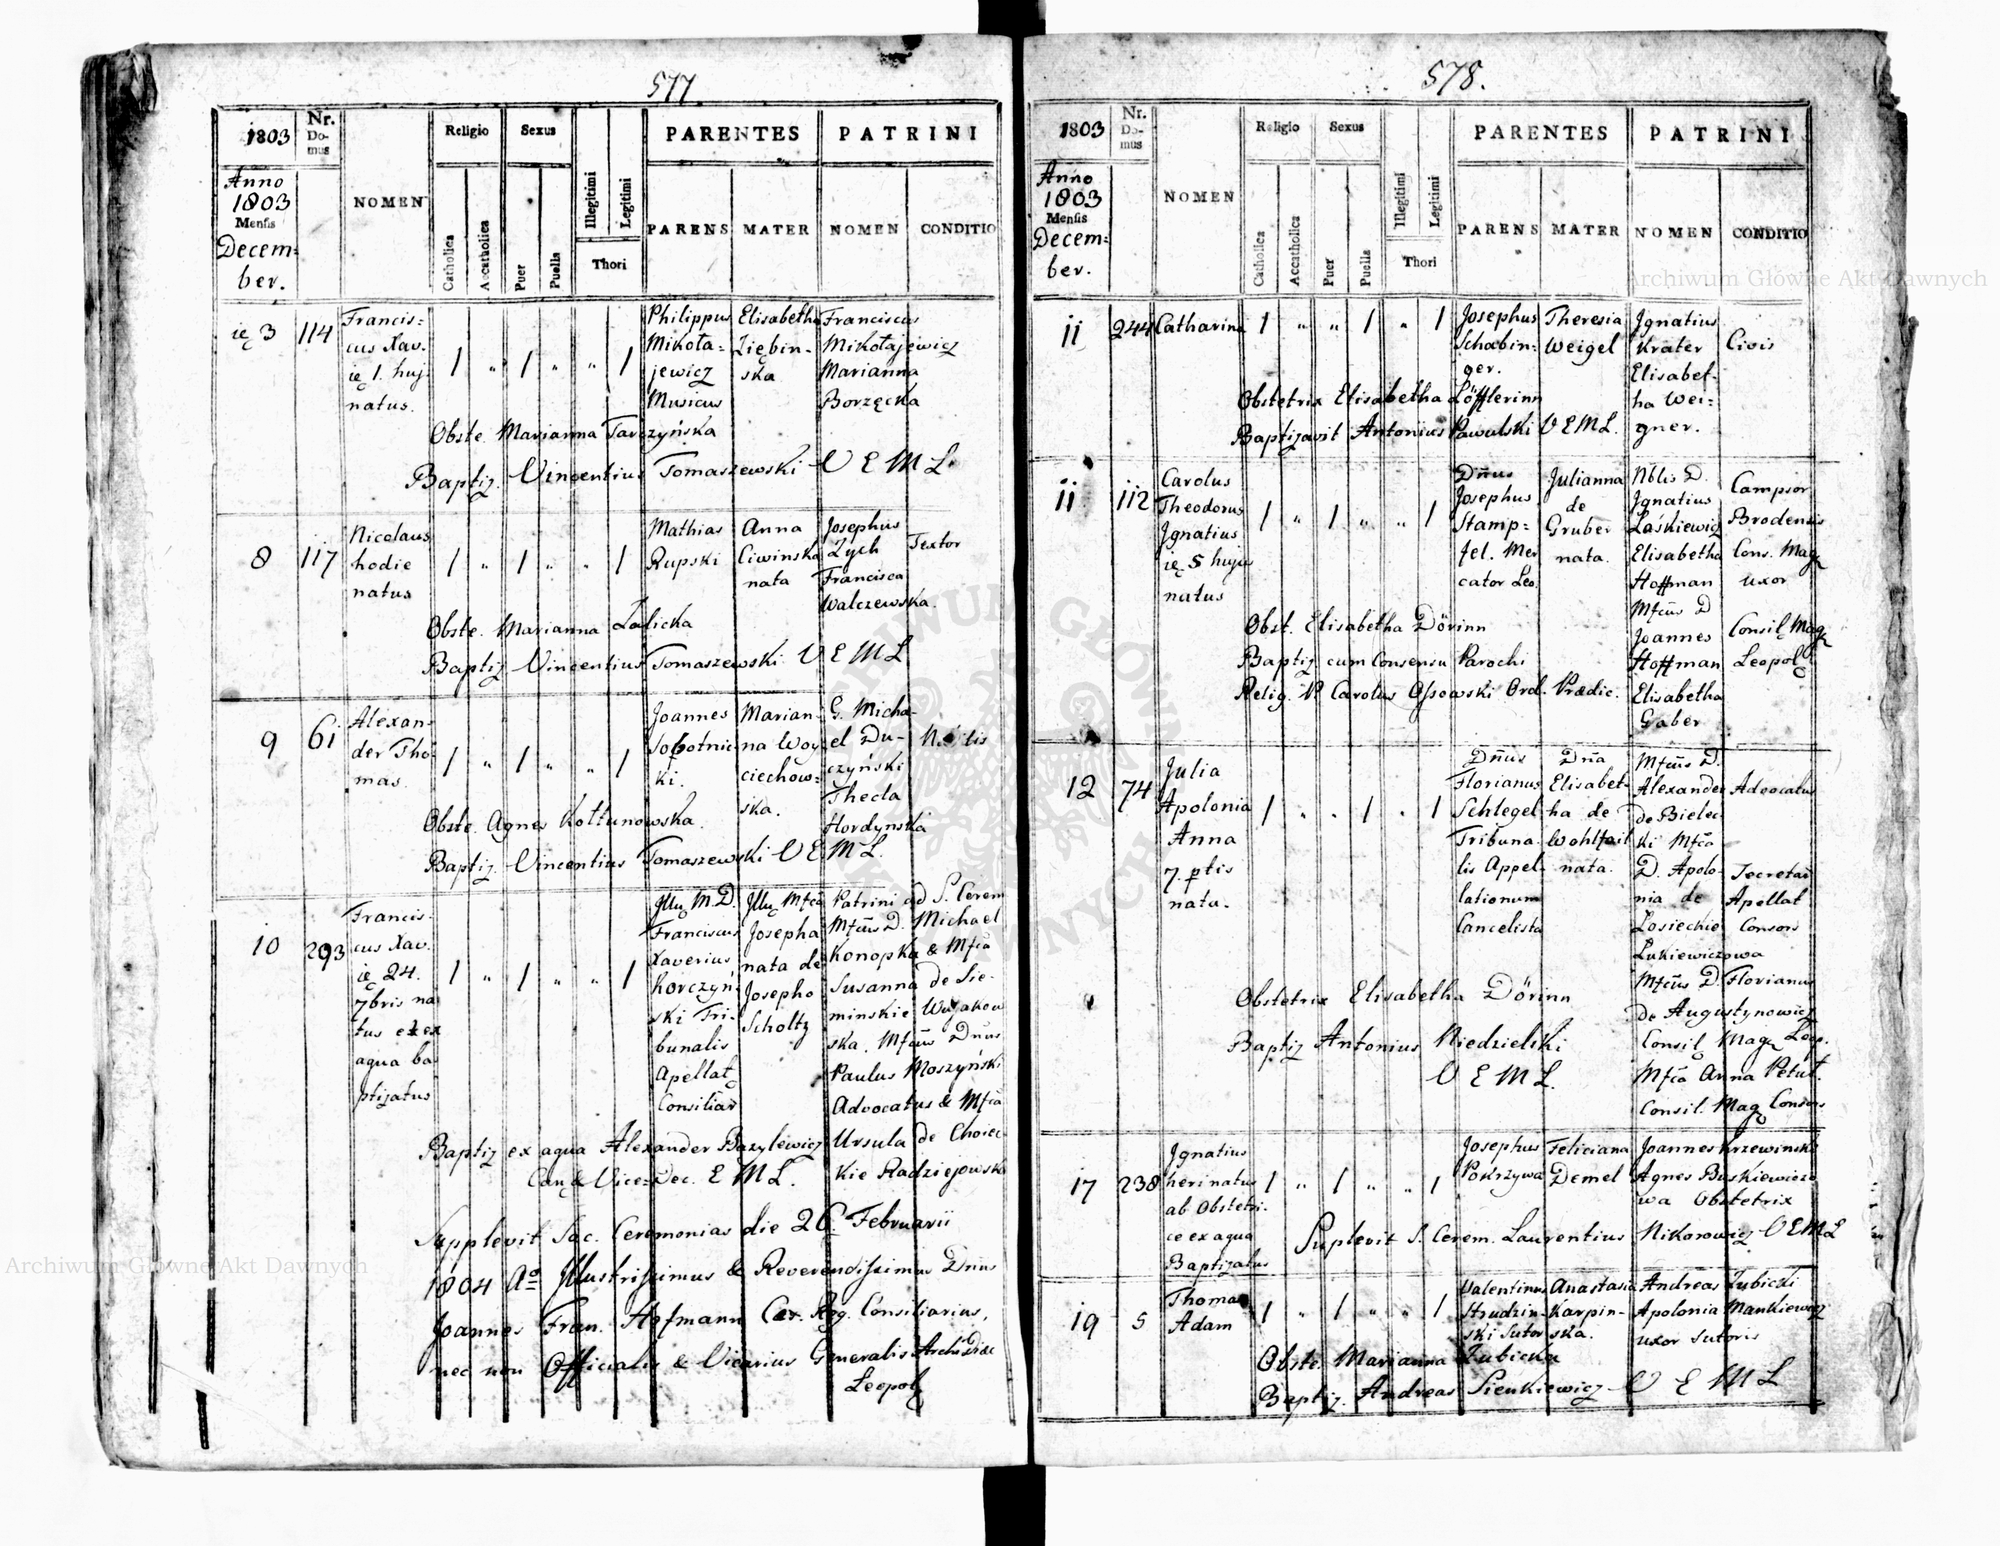 577
1803
Nr. Domus
NOMEN
Religio
Sexus
Illegitimi
Legitimi
Thori
PARENTES
PATRINI
Catholica
Accatholica
Puer
Puella
PARENS
MATER
NOMEN
CONDITIO
Anno
1803
Mensis
Decem:
ber.
3
114
Francis:
cus Xav.
1. huj
natus.
Philippus
Mikoła=
jewicz
Musicus
Elisabetha
Ziębin-
ska
Franciscus
Mikołajewicz
Marianna
Borzęcka
Obste. Marianna Tarczyńska
Baptiz. Vincentius Tomaszewski V E M L.
8
117
Nicolaus
hodie
natus
Mathias
Rupski
Anna
Ciwinska
nata
Josephus
Zych
Francisca
Walczewska.
Textor
Obste. Marianna Zalicka
Baptiz Vincentius Tomaszewski V E M L
9
61
Alexan-
der Tho
mas.
Joannes
Sobotnic
ki.
Marian-
na Woy
ciechow=
ska.
G. Micha-
el Du-
czyński
Thecla
Hordynska
Obste. Agnes Kołtunowska.
Baptiz Vincentius Tomaszewski V E M L.
10
293
Francis-
cus Xav.
24.
7bris na
tus et ex
aqua ba
ptizatus
Franciscus
Xaverius
Korczyń
ski Tri-
bunalis
Apellat
Consiliar
Josepha
nata de
Josepho
Scholtz
Patrini ad S. Cerem
D. Michael
Konopka &
Susanna de Sie-
minskie Wujakow
ska. Dnus
Paulus Moszyński
Advocatus &
Ursula de Choiec
kie Radziejowska
Baptiz ex aqua Alexander Bazylewicz
Can & Vice=Dec. E M L.
Supplevit Sac. Ceremonias die 26 Februarii
1804 Ao Illustrissimus & Reverendissimus Dnus
Joannes Fran. Hofmann Cæs. Reg. Consiliarius,
nec non Officialis & Vicarius Generalis
Leopol
578.
1803
Nr. Domus
NOMEN
Religio
Sexus
Illegitimi
Legitimi
Thori
PARENTES
PATRINI
Catholica
Accatholica
Puer
Puella
PARENS
MATER
NOMEN
CONDITIO
Anno
1803
Mensis
Decem:
ber.
11
244
Catharina
Josephus
Schabin-
ger.
Theresia
Weigel
Ignatius
Krater
Elisabet-
ha Wei=
gner.
Civis
Obstetrix Elisabetha Löfflerinn
Baptizavit Antonius Pawulski V E M L.
11
112
Carolus
Theodorus
Ignatius
5 hujus
natus
Dnus
Josephus
Stamp=
fel. Mer
cator Leo.
Julianna
de
Gruber
nata.
Nblis D.
Ignatius
Laśkiewicz
Elisabetha
Hoffman
D
Joannes
Hoffman
Elisabetha
Graber
Campsor
Brodensis
Cons. Mag
uxor
Consil Mag
Leopol
Obst. Elisabetha Dörinn
Baptiz. cum Consensu Parochi
Relig. P. Carolus Ossowski Ord. Prædic.
12
74
Julia
Apolonia
Anna
7 ptis
nata.
Dnus
Florianus
Schlegel
Tribuna
lis Appel-
lationum
Cancelista
Dna
Elisabet-
ha de
Wohlfeil
nata.
D.
Alexander
de Bielec
ki
D. Apolo-
nia de
Losieckie
Lukiewiczowa
D. Florianus
de Augustynowicz
Consil Mag Leop.
Anna Petut.
Consil. Mag Consors
Advocatus
Secretar
Apellat
Consors
Obstetrix Elisabetha Dörinn
Baptiz Antonius Niedzielski
V E M L.
17
238
Ignatius
heri natus
ab Obstetri-
ce ex aqua
Baptizatus
Josephus
Pokrzywa
Feliciana
Demel
Joannes Krzewinski
Agnes Buskiewiczo
wa Obstetrix
Suplevit S. Cerem. Laurentius Nikorowicz V E M L
19
5
Thomas
Adam
Valentinus
Strudzin-
ski Sutor
Anastasia
Karpin-
ska.
Andreas Zubicki
Apolonia Mankiewicz
uxor Sutoris
Obste. Marianna Zubicka
Baptiz. Andreas Sienkiewicz V E M L
Archiwum Główne Akt Dawnych
Archiwum Główne Akt Dawnych